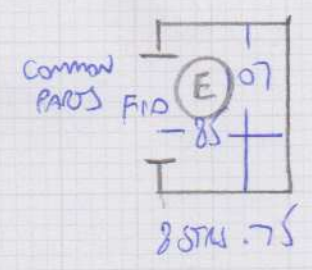 COMMON
PARTS
FID
E
07
85
8 STRS . 75